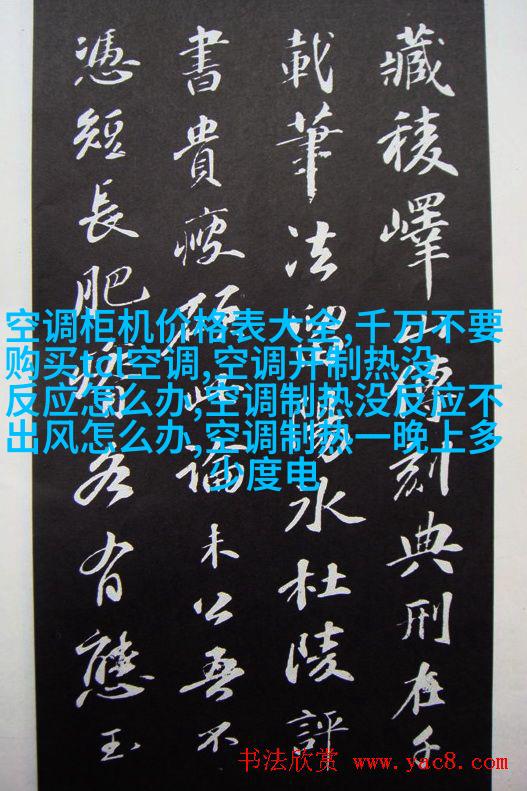 藏稜嶧山傳刻典刑在千
載筆法留陽冰杜陵評
書貴瘦硬此論未公吾不
憑短長肥瘠各有態玉
空调柜机价格表大全,千万不要
购买tcl空调,空调开制热没
反应怎么办,空调制热没反应不
出风怎么办,空调制热一晚上多
少度电
书法欣赏 www.yac8.com